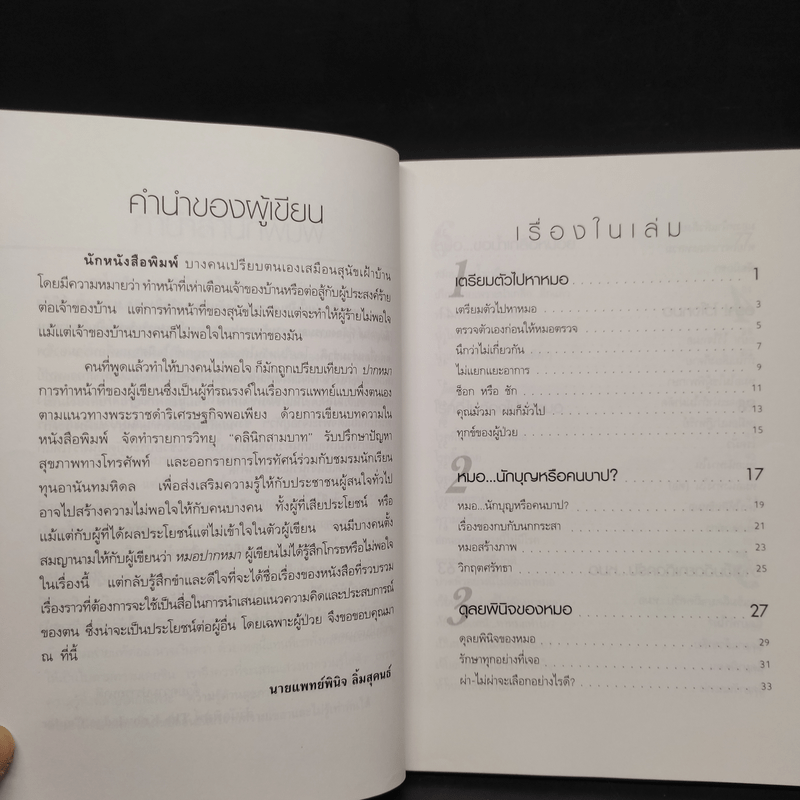 คำนำของผู้เขียน
นักหนังสือพิมพ์ บางคนเปรียบตนเองเสมือนสุนัขเฝ้าบ้าน
โดยมีความหมายว่า ทำหน้าที่เห่าเตือนเจ้าของบ้านหรือต่อสู้กับผู้ประสงค์ร้าย
ต่อเจ้าของบ้าน แต่การทำหน้าที่ของสุนัขไม่เพียงแต่จะทำให้ผู้ร้ายไม่พอใจ
แม้แต่เจ้าของบ้านบางคนก็ไม่พอใจในการเห่าของมัน
คนที่พูดแล้วทำให้บางคนไม่พอใจ ก็มักถูกเปรียบเทียบว่า ปากหมา
การทำหน้าที่ของผู้เขียนซึ่งเป็นผู้ที่รณรงค์ในเรื่องการแพทย์แบบพึ่งตนเอง
ตามแนวทางพระราชดำริเศรษฐกิจพอเพียง ด้วยการเขียนบทความใน
หนังสือพิมพ์ จัดทำรายการวิทยุ "คลินิกสามบาท" รับปรึกษาปัญหา
สุขภาพทางโทรศัพท์ และออกรายการโทรทัศน์ร่วมกับชมรมนักเรียน
ทุนอานันทมหิดล เพื่อส่งเสริมความรู้ให้กับประชาชนผู้สนใจทั่วไป
อาจไปสร้างความไม่พอใจให้กับคนบางคน ทั้งผู้ที่เสียประโยชน์ หรือ
แม้แต่กับผู้ที่ได้ผลประโยชน์แต่ไม่เข้าใจในตัวผู้เขียน จนมีบางคนตั้ง
สมญานามให้กับผู้เขียนว่า หมอปากหมา ผู้เขียนไม่ได้รู้สึกโกรธหรือไม่พอใจ
ในเรื่องนี้ แต่กลับรู้สึกขำและดีใจที่จะได้ชื่อเรื่องของหนังสือที่รวบรวม
เรื่องราวที่ต้องการจะใช้เป็นสื่อในการนำเสนอแนวความคิดและประสบการณ์
ของตน ซึ่งน่าจะเป็นประโยชน์ต่อผู้อื่น โดยเฉพาะผู้ป่วย จึงขอขอบคุณมา
ณ ที่นี้
นายแพทย์พินิจ ลิ้มสุคนธ์
เรื่องในเล่ม
1 เตรียมตัวไปหาหมอ 1
เตรียมตัวไปหาหมอ 3
ตรวจตัวเองก่อนให้หมอตรวจ 5
นึกว่าไม่เกี่ยวกัน 7
ไม่แยกแยะอาการ 9
ช็อก หรือ ชัก 11
คุณมั่วมา ผมก็มั่วไป 13
ทุกข์ของผู้ป่วย 15
2 หมอ...นักบุญหรือคนบาป? 17
หมอ...นักบุญหรือคนบาป? 19
เรื่องของกบกับนกกระสา 21
หมอสร้างภาพ 23
วิกฤตศรัทธา 25
3 ดุลยพินิจของหมอ 27
ดุลยพินิจของหมอ 29
รักษาทุกอย่างที่เจอ 31
ผ่า-ไม่ผ่าจะเลือกอย่างไรดี? 33